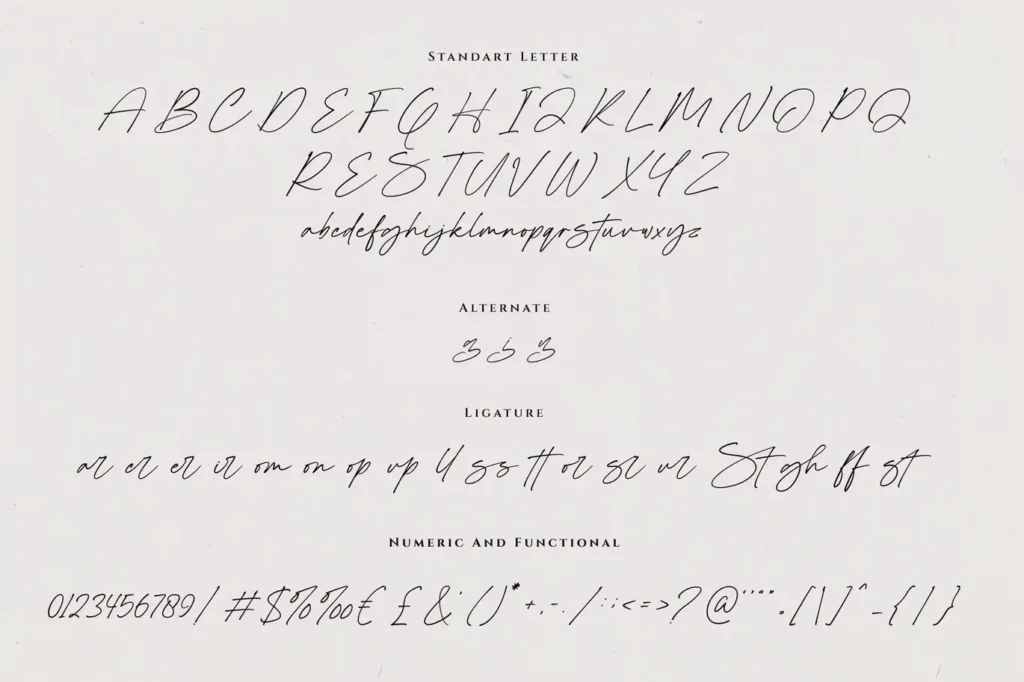 STANDART LETTER
ABCDEFGHIJKLMNOPQ
RESTUVWXYZ
abcdefghijklmnopqrstuvwxyz
ALTERNATE
g j y
LIGATURE
ar er er ir om on op up ll ss tt or sr ur St gh ff st
NUMERIC AND FUNCTIONAL
0123456789/ #$%‰€ £& ' ()*+,-./:;<=>?@'"'".[\]^_{|}